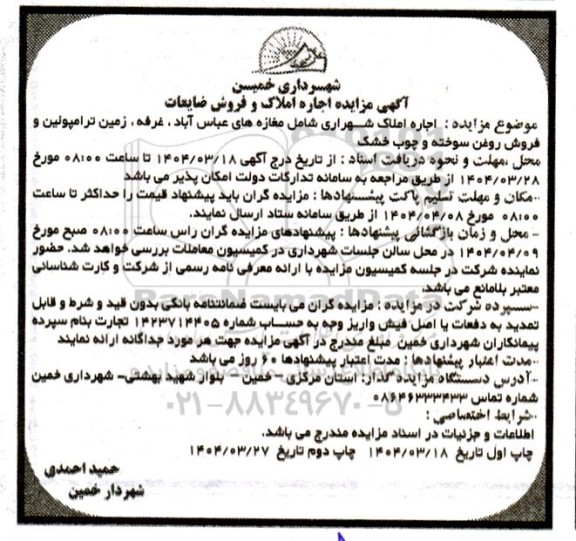 شهرداری خمیسن
آگهی مزایده اجاره املاک و فروش ضایعات
موضوع مزایده : اجاره املاک شهراری شامل مغازه های عباس آباد ، غرفه ، زمین ترامپولین و
فروش روغن سوخته و چوب خشک
محل ،مهلت و نحوه دریافت اسناد : از تاریخ درج آگهی ۱۴۰۴/۰۳/۱۸ تا ساعت ۰۸:۰۰ مورخ
۱۴۰۴/۰۳/۲۸ از طریق مراجعه به سامانه تدارکات دولت امکان پذیر می باشد
-مکان و مهلت تسلیم پاکت پیشنهادها : مزایده گران باید پیشنهاد قیمت را حداکثر تا ساعت
۰۸:۰۰ مورخ ۱۴۰۴/۰۴/۰۸ از طریق سامانه ستاد ارسال نمایند.
- محل و زمان بازگشائی پیشنهادها : پیشنهادهای مزایده گران راس ساعت ۰۸:۰۰ صبح مورخ
۱۴۰۴/۰۴/۰۹ در محل سالن جلسات شهرداری در کمیسیون معاملات بررسی خواهد شد. حضور
نماینده شرکت در جلسه کمیسیون مزایده با ارائه معرفی نامه رسمی از شرکت و کارت شناسائی
معتبر بلامانع می باشد.
-سپرده شرکت در مزایده : مزایده گران می بایست ضمانتنامه بانکی بدون قید و شرط و قابل
تمدید به دفعات یا اصل فیش واریز وجه به حساب شماره ۱۴۲۳۷۱۴۴۰۵ تجارت بنام سپرده
پیمانکاران شهرداری خمین مبلغ مندرج در آگهی مزایده جهت هر مورد جداگانه ارائه نمایند
-مدت اعتبار پیشنهادها : مدت اعتبار پیشنهادها ۶۰ روز می باشد
-آدرس دستگاه مزایده گذار: استان مرکزی - خمین - بلوار شهید بهشتی- شهرداری خمین
شماره تماس ۰۸۶۴۶۳۳۳۴۳۳
-شرایط اختصاصی :
اطلاعات و جزئیات در اسناد مزایده مندرج می باشد.
چاپ اول تاریخ ۱۴۰۴/۰۳/۱۸ چاپ دوم تاریخ ۱۴۰۴/۰۳/۲۷
حمید احمدی
شهردار خمین
ParsNamadData
۰۲۱-۸۸۳۴۹۶۷۰-۵